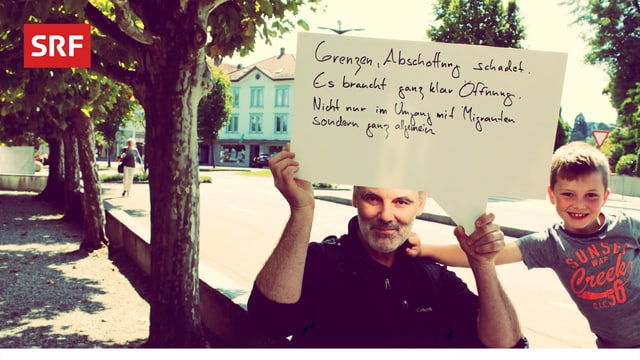 SRF
Grenzen, Abschottung schadet.
Es braucht ganz klar Öffnung.
Nicht nur im Umgang mit Migranten
sondern ganz allgemein
SUNSET
WAP
Creek
56